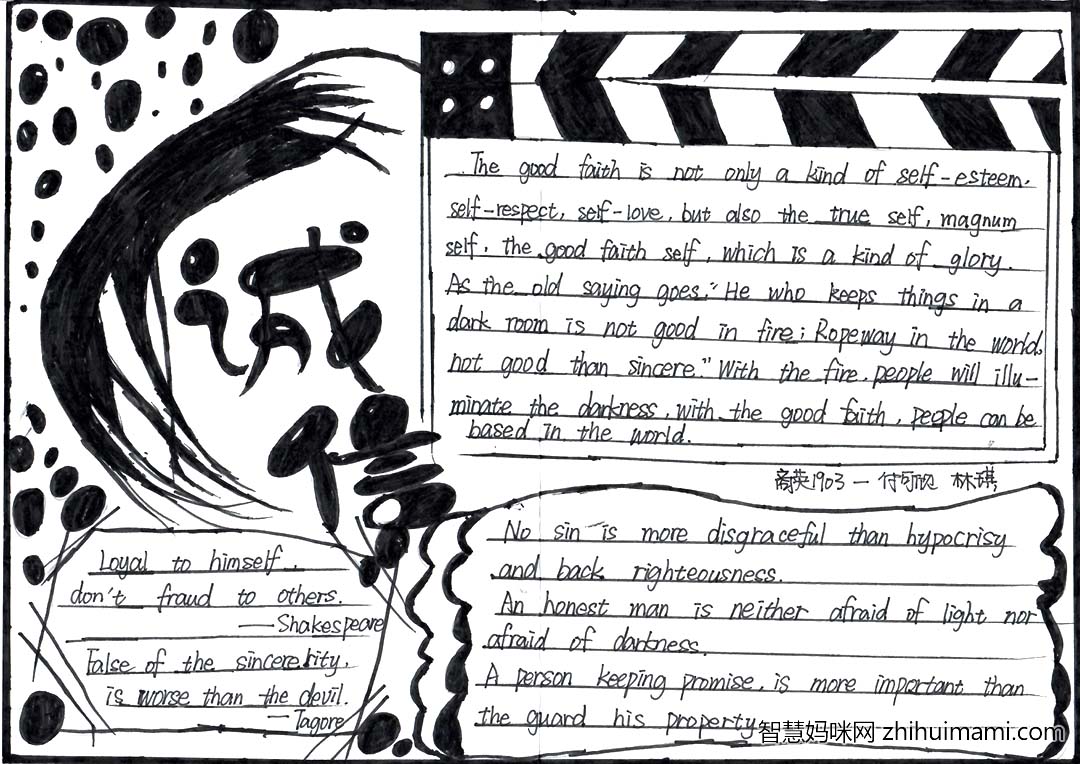 诚信
The good faith is not only a kind of self-esteem,
self-respect, self-love, but also the true self, magnum
self, the good faith self, which is a kind of glory.
As the old saying goes: "He who keeps things in a
dark room is not good in fire; Ropeway in the world,
not good than sincere." With the fire, people will illu-
minate the darkness, with the good faith, people can be
based in the world.
商英1903 — 付可欣 林琪
Loyal to himself,
don't fraud to others.
— Shakespeare
False of the sincererity,
is worse than the devil.
— Tagore
No sin is more disgraceful than hypocrisy
and back righteousness.
An honest man is neither afraid of light nor
afraid of darkness.
A person keeping promise, is more important than
the guard his property
智慧妈咪网 zhihuimami.com